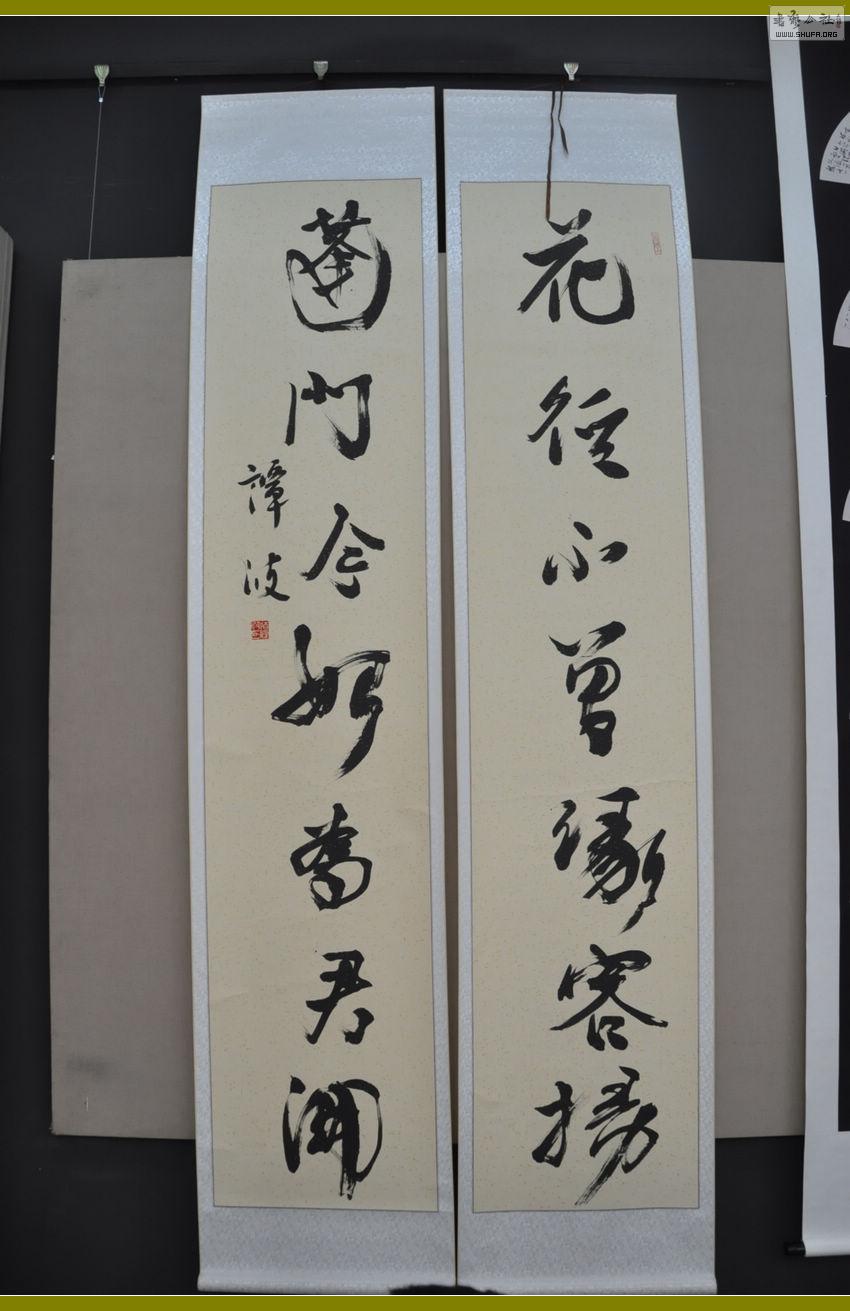 花徑不曾緣客掃
蓬門今始為君開
譚波
WWW.SHUFA.ORG